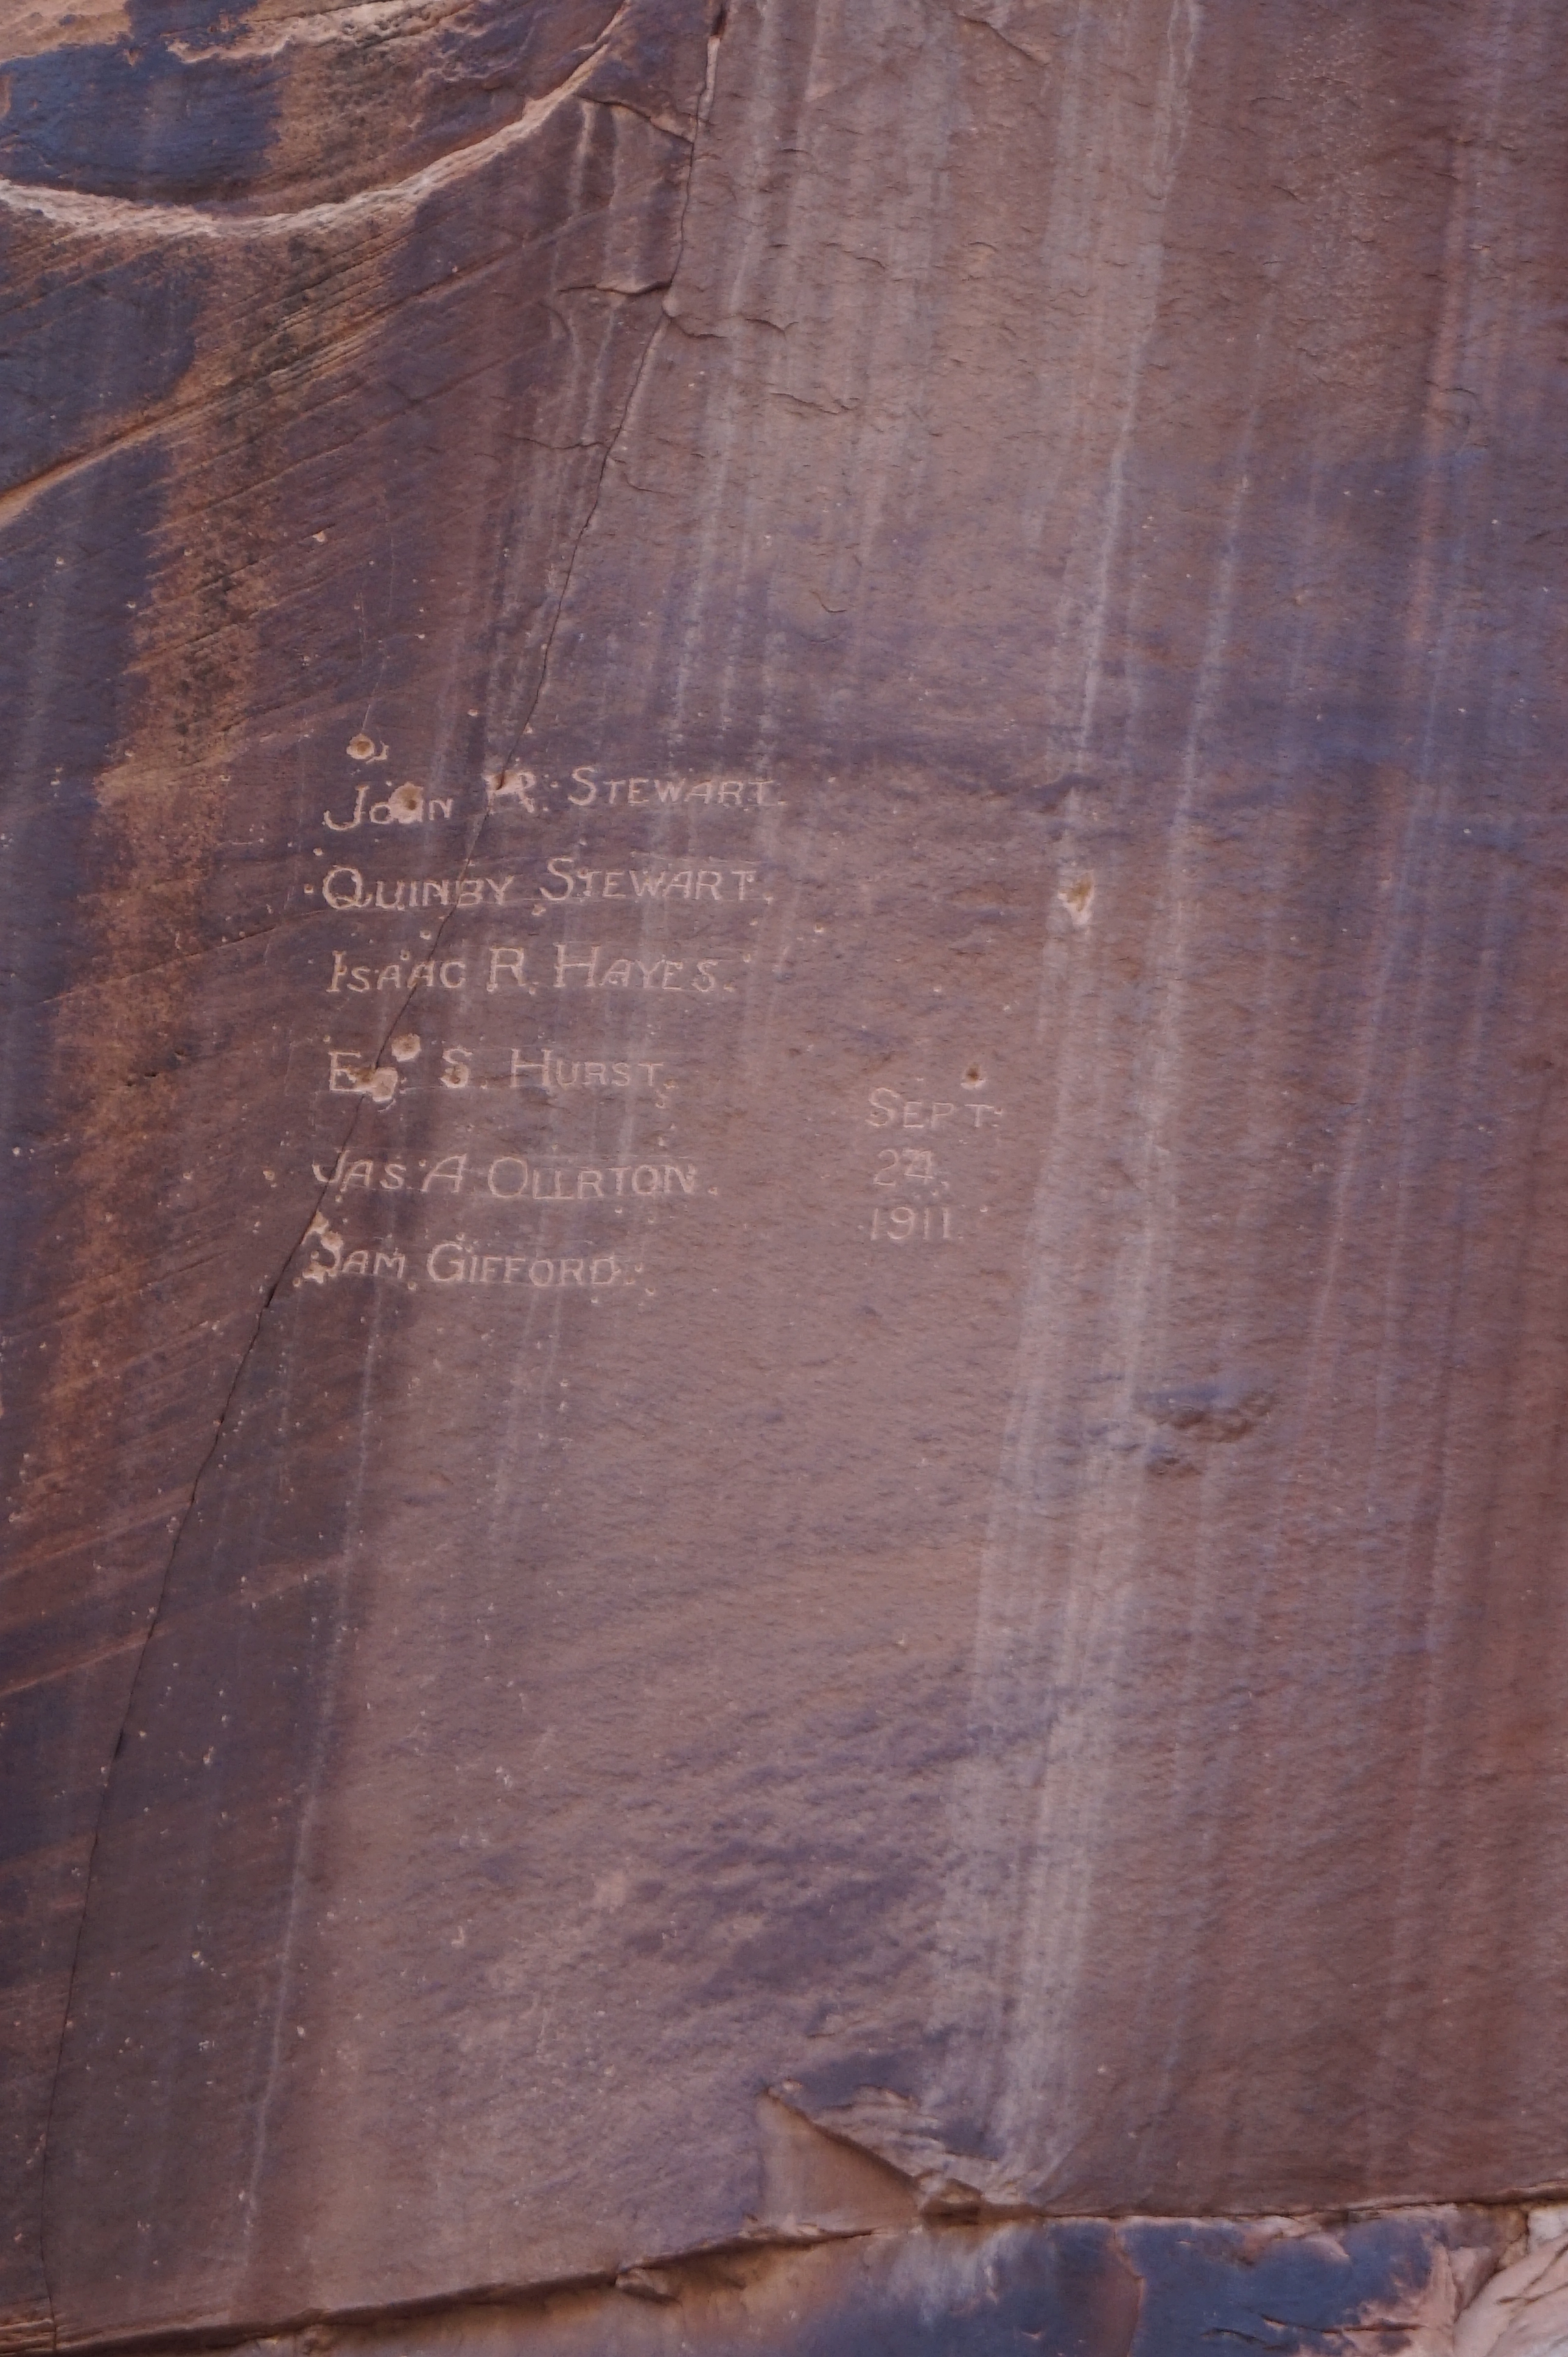 John R. Stewart.
Quinby Stewart.
Isaac R. Hayes.
S. Hurst.
Jas. A. Ollrton.
Sam Gifford.
Sept.
24,
1911